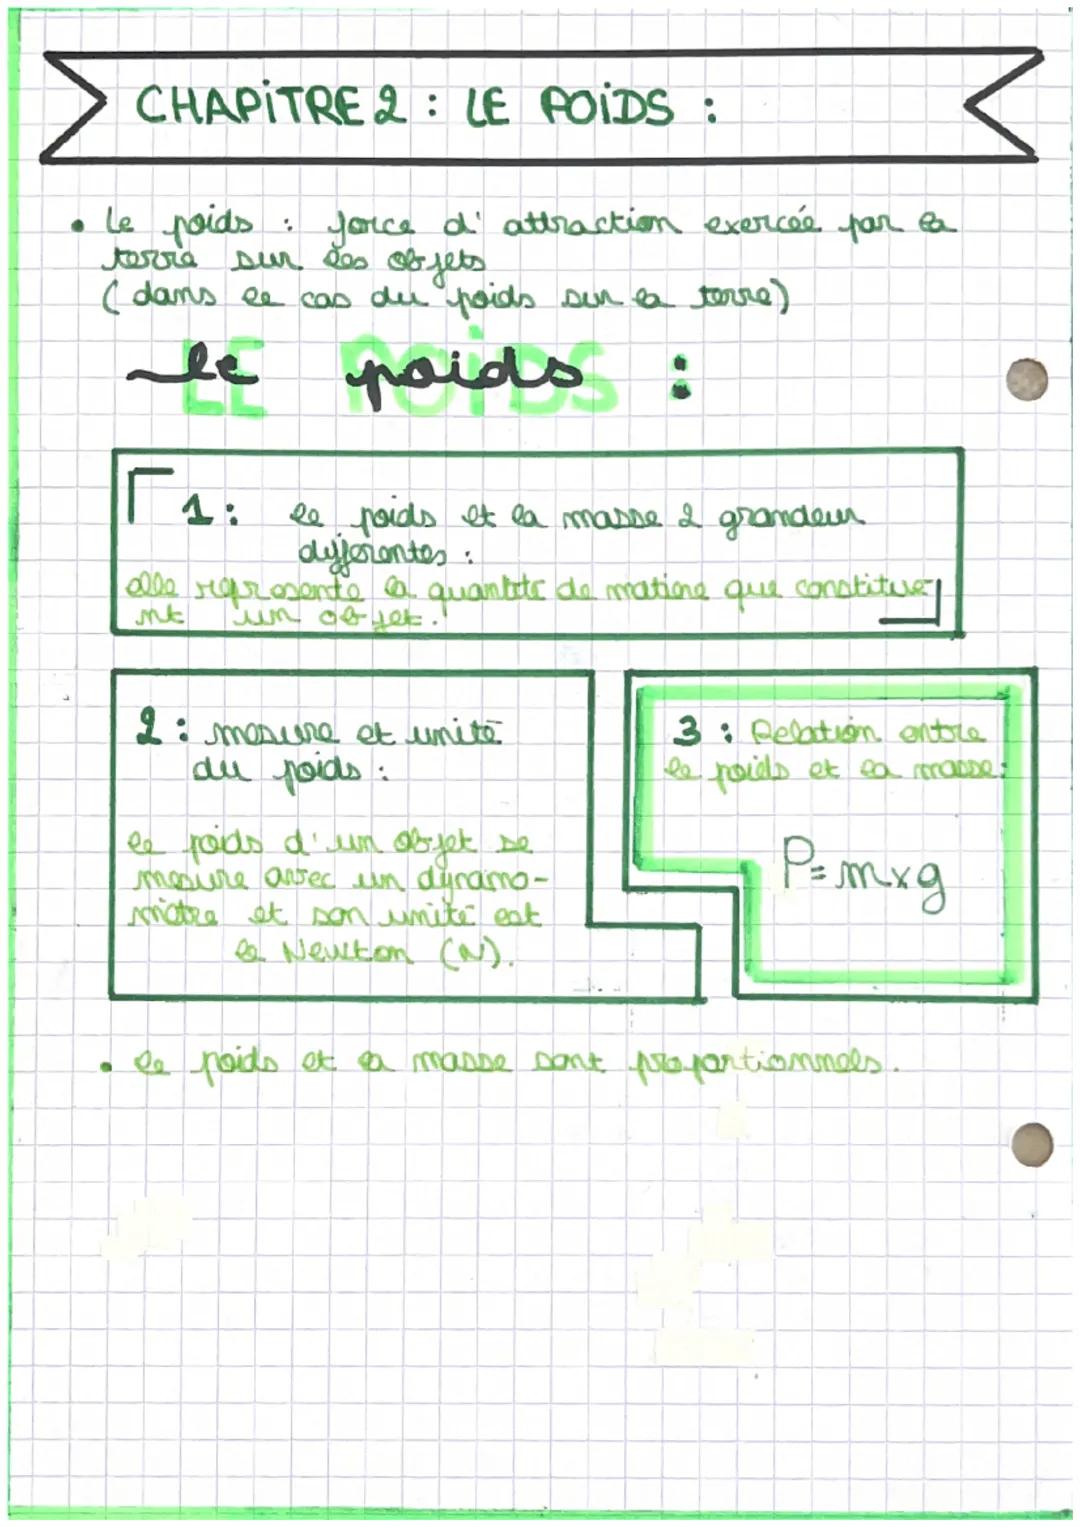 CHAPiTRE 2 : LE POiDS :
• Le poids : force d'attraction exercée par la
terre sur les objets
(dans le cas du poids sur la terre)
le poids :
LE POiDS
1: le poids et la masse 2 grandeur
differentes :
elle represente la quantité de matiere que constitue
nt un objet.
2 : mesure et unité
du poids :
le poids d'un objet se
mesure avec un dynamo-
mètre et son unité est
le Newton (N).
3 : Relation entre
le poids et la masse:
P=mxg
• le poids et la masse sont proportionnels.